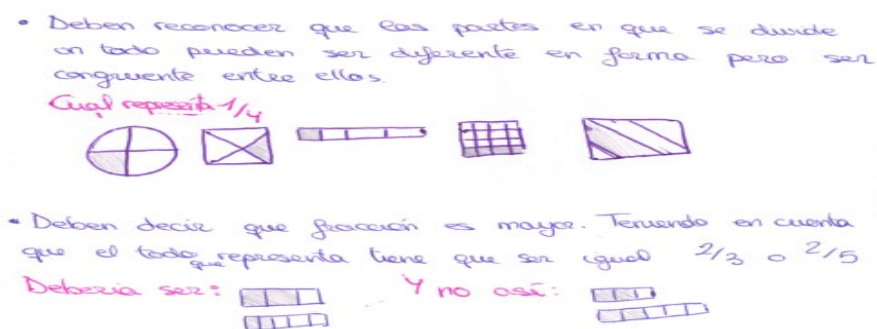 • Deben reconocer que las partes en que se divide
un todo pueden ser diferente en forma pero ser
congruente entre ellos.
Cual representa 1/4
• Deben decir que fracción es mayor. Teniendo en cuenta
que el todo que representa tiene que ser igual 2/3 o 2/5
Debería ser: Y no así: